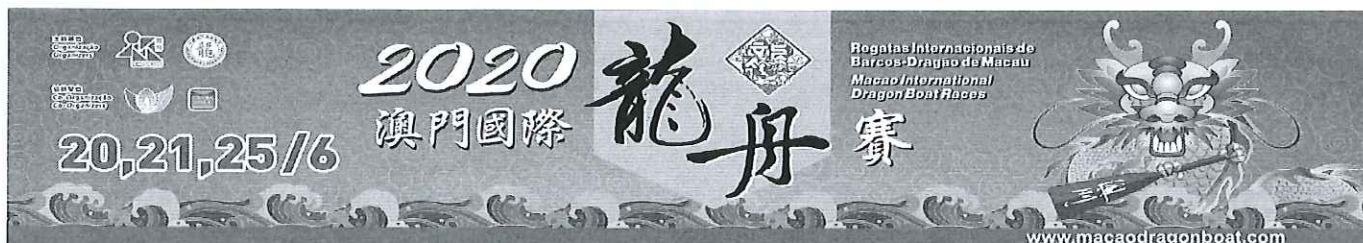 主辦機構
Organização
Organizers
協辦單位
Co-Organização
Co-Organizers
20,21,25/6
2020
澳門國際
龍舟
賽
Regatas Internacionais de
Barcos-Dragão de Macau
Macao International
Dragon Boat Races
www.macaodragonboat.com